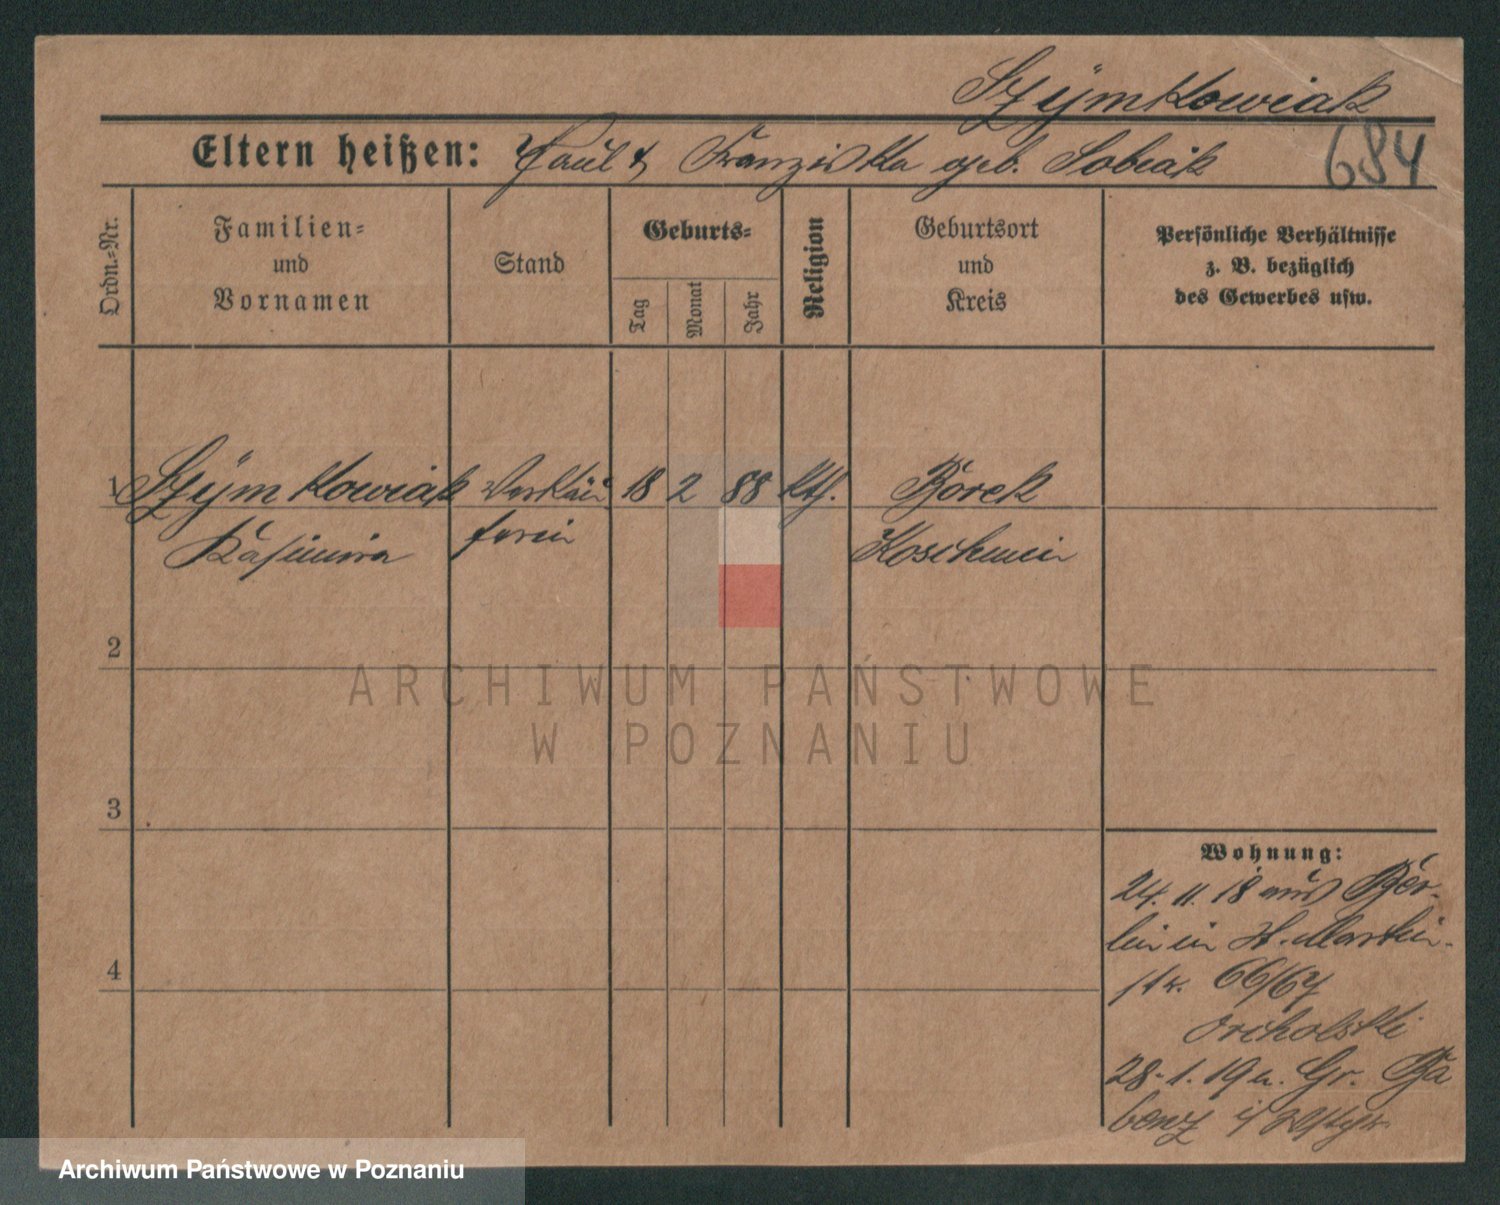 Szÿmkowiak
Eltern heißen: Paul & Franziska geb. Sobiak
684
Ordn.-Nr.
Familien-
und
Vornamen
Stand
Geburts-
Tag
Monat
Jahr
Religion
Geburtsort
und
Kreis
Persönliche Verhältnisse
z. B. bezüglich
des Gewerbes usw.
1 Szÿmkowiak Verkäu 18 2 88 kth. Borek
Kasimira ferin Koschmin
2
ARCHIWUM PAŃSTWOWE
W POZNANIU
3
Wohnung:
24. 11. 18 aus Ber-
lin in St. Martin-
4
str. 66/67
Orcholski
28. 1. 19 n. Gr.
Archiwum Państwowe w Poznaniu